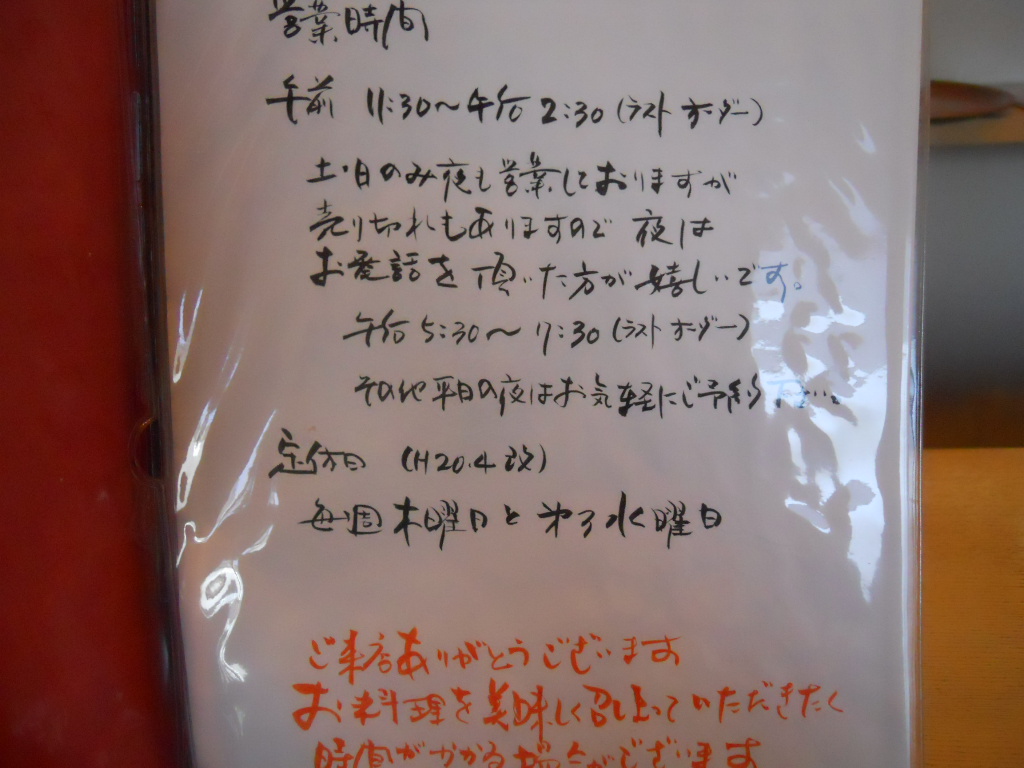 営業時間
午前 11:30〜午后 2:30 (ラストオーダー)
土・日のみ夜も営業しておりますが
売り切れもありますので 夜は
お電話を頂いた方が嬉しいです。
午后 5:30〜 7:30 (ラストオーダー)
その他平日の夜はお気軽にご予約下さい。
定休日 (H20.4改)
毎週木曜日と第3水曜日
ご来店ありがとうございます
お料理を美味しく召し上っていただきたく
時間がかかる場合がございます